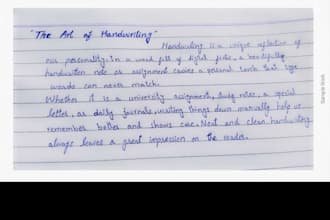 "The Art of Handwriting"
Handwriting is a unique reflection of
our personality. In a world full of digital fonts, a beautifully
handwritten note or assignment carries a personal touch that type
words can never match.
Whether it is a university assignment, study notes, a special
letter, or daily journals, writing things down manually help us
remember better and shows care. Neat and clean handwriting
always leaves a great impression on the reader.
Sample Work